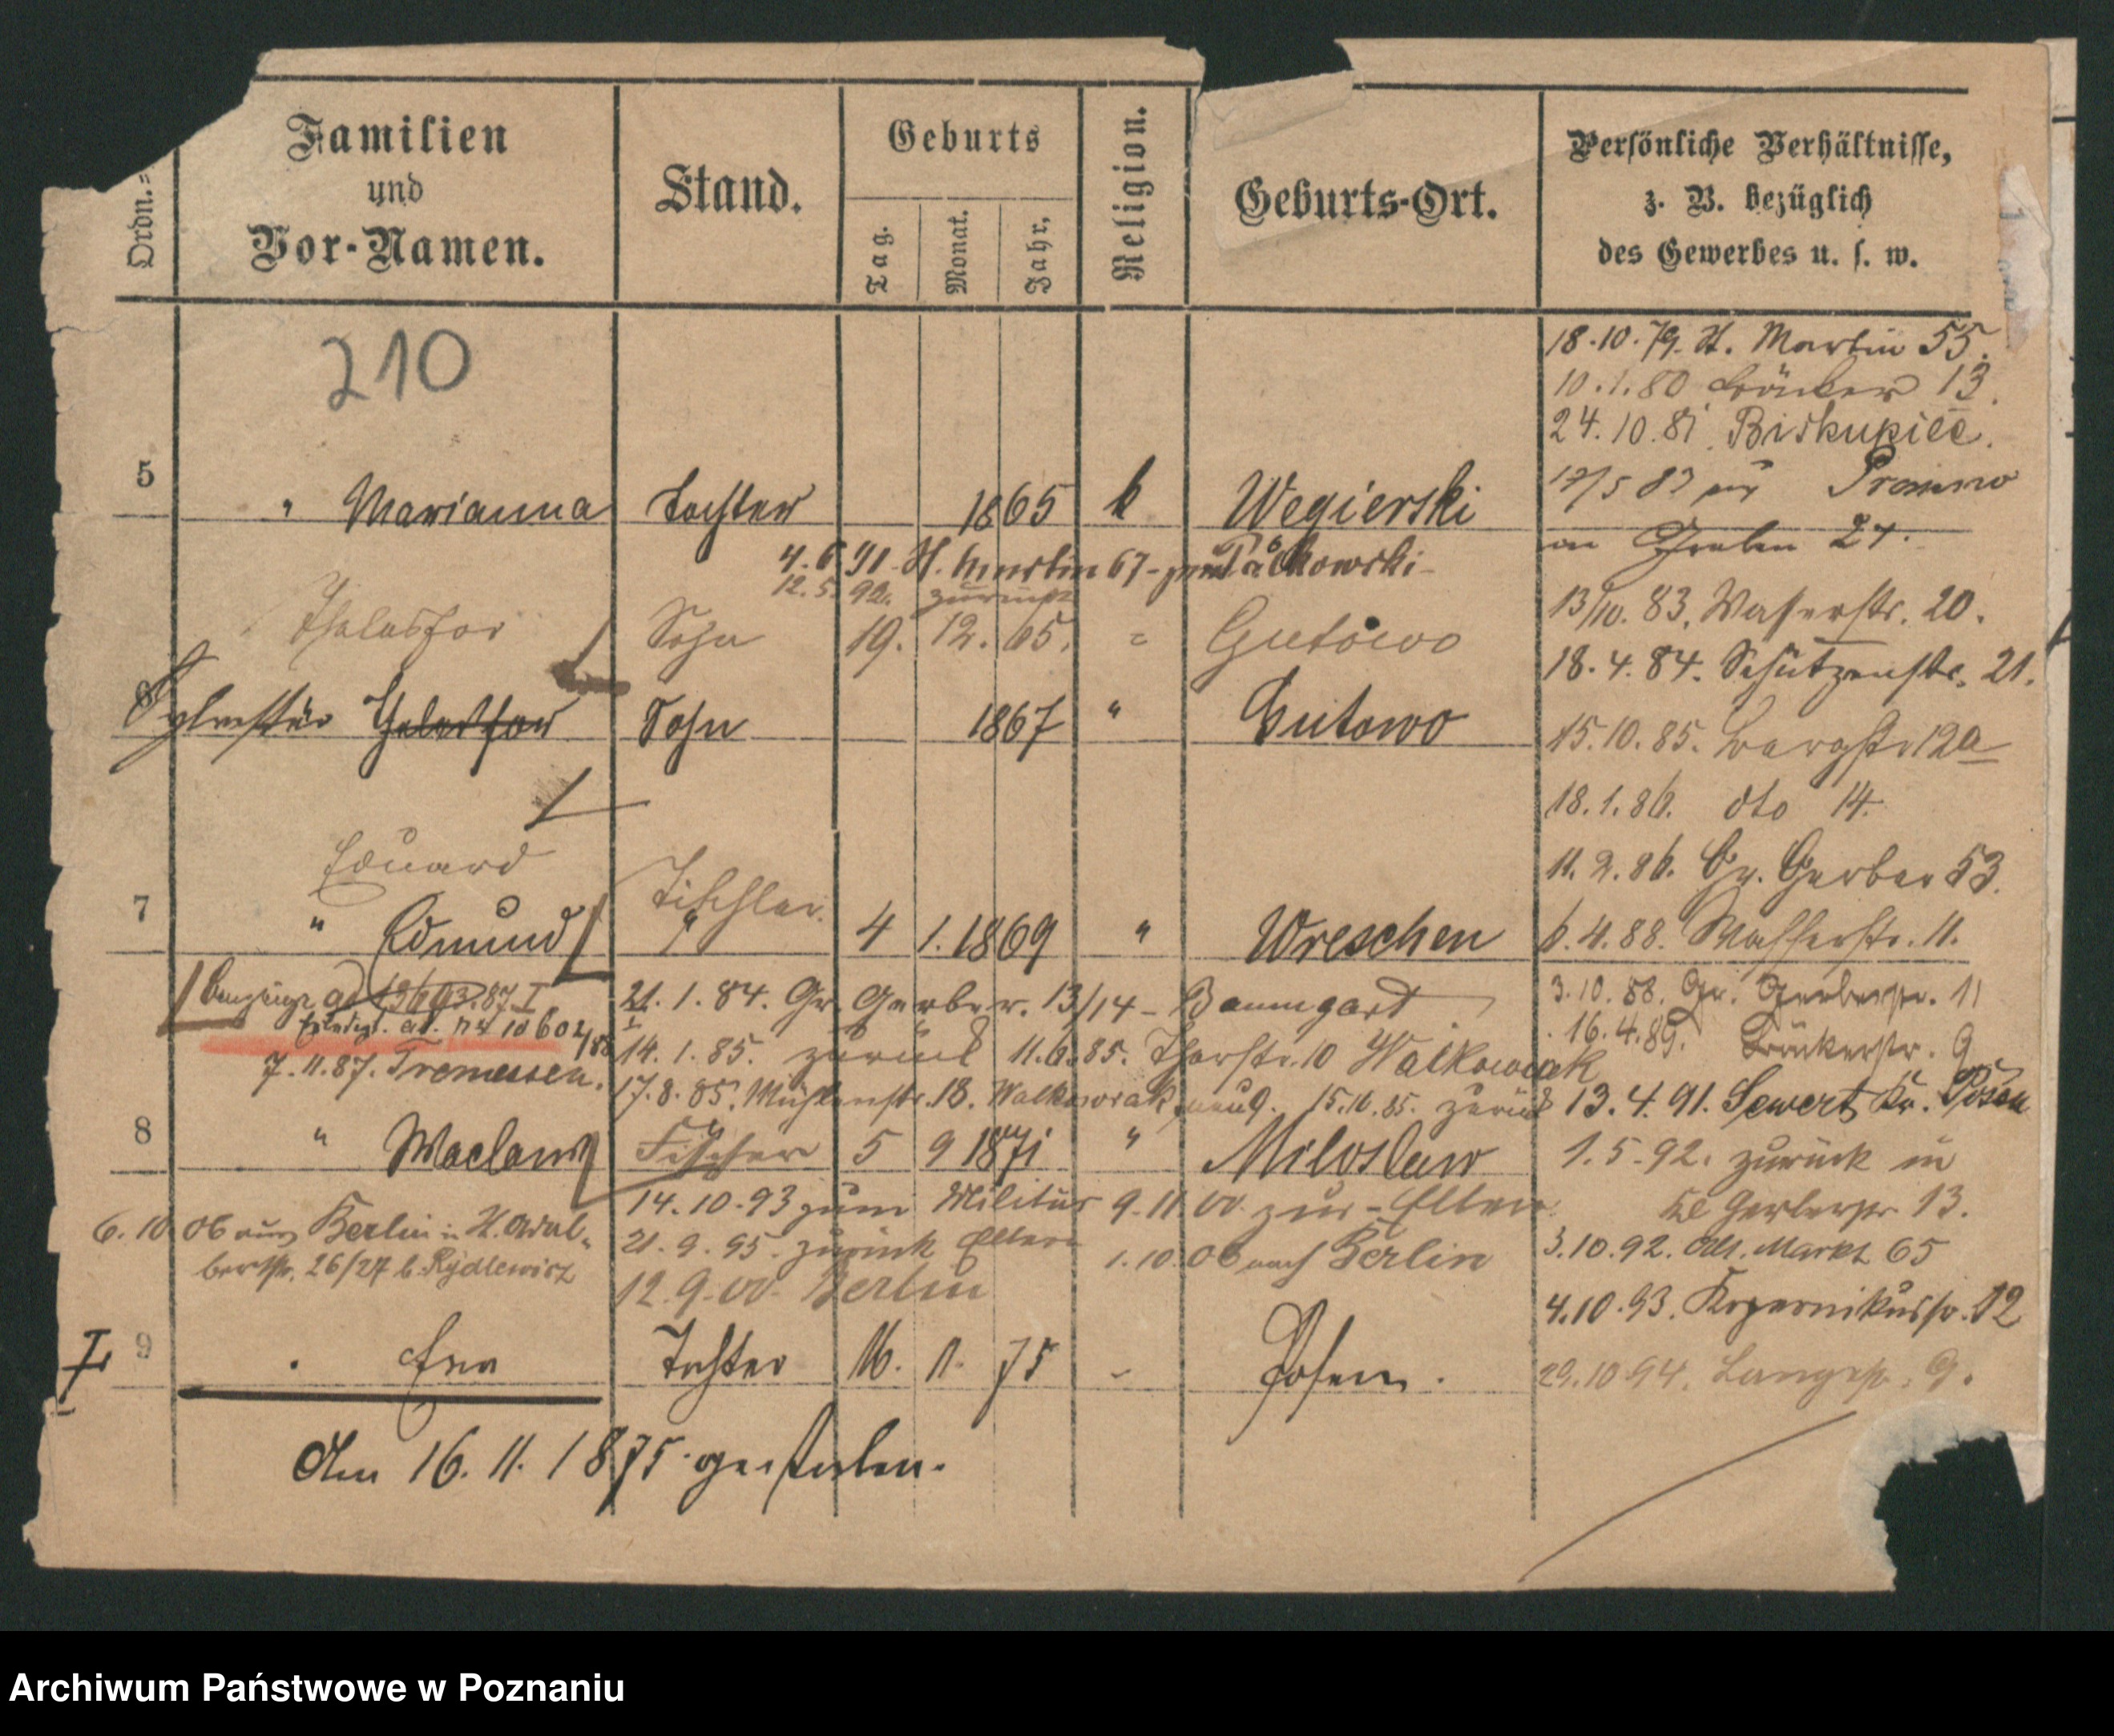 Ordn.=
Familien
und
Vor-Namen.
Stand.
Geburts
Tag.
Monat.
Jahr.
Religion.
Geburts-Ort.
Persönliche Verhältnisse,
z. B. bezüglich
des Gewerbes u. s. w.
210
18.10.79. St. Martin 55.
10.1.80 13.
24.10.81. Biskupice.
5 " Marianna Tochter 1865 k Wegierski
Graben 24.
4.6.91. St. Martin 67
12.5.92. zurück
13/10. 83. Wasserstr. 20.
Sohn 19. 12. 65. = Gutowo
18.4.84. Schützenstr. 21.
6 Sylvester Sohn 1867 " Gutowo
15.10.85. Bergstr. 12a
18.1.86. dto 14.
Eduard
11.2.86. Gr. Gerber 53.
Tischler.
7 " Edmund " 4 1. 1869 " Wreschen
6.4.88. Wasserstr. 11.
21.1.84. Gr. Gerberstr. 13/14 - Baumgart
3.10.88. Gr. Gerberstr. 11
16.4.89. 9
14.1.85. zurück 11.6.85. Thorstr. 10 Walkowiak
7.11.87. Tremessen.
17.8.85. Mühlenstr. 18. Walkowiak 15.10.85. zurück
13.4.91. Kr. Posen
8 " Waclaw Fischer 5 9 1871 " Miloslaw
1.5.92. zurück in
14.10.93 zum Militär 9.11.00. zur - Eltern
Kl Gerberstr 13.
6.10.06 aus Berlin in St. Adal-
bertstr. 26/27 b. Rydlewicz
21.9.95. zurück Eltern
1.10.06 nach Berlin
3.10.92. Alt. Markt 65
12.9.00. Berlin
4.10.93. Kopernikusstr. 12
9 Eva Tochter 16. 1. 75 - Posen.
29.10.94. Langestr. 9.
Am 16.11.1875 gestorben.
Archiwum Państwowe w Poznaniu